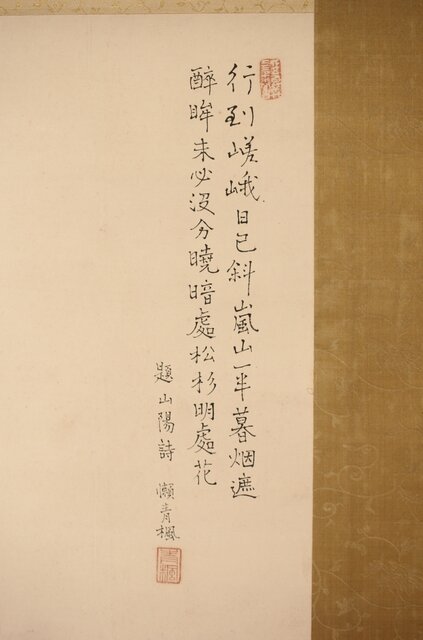 行到嵯峨日已斜嵐山一半暮烟遮
醉眸未必没分曉暗處松杉明處花
題山陽詩 懶青楓
青楓